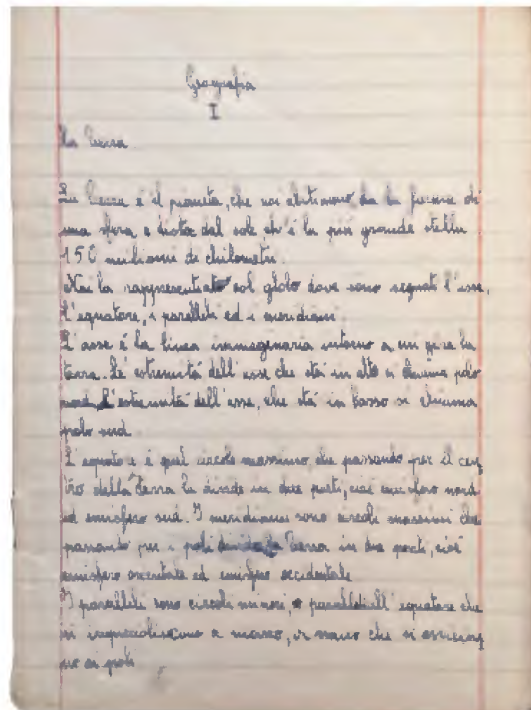 Geografia
I
La terra
La terra è il pianeta, che noi abitiamo ha la forma di
una sfera e dista dal sole ch'è la più grande stella
150 milioni di chilometri.
Noi la rappresentiato col globo dove sono segnati l'asse,
l'equatore, i paralleli ed i meridiani.
L'asse è la linea immaginaria intorno a cui gira la
terra. L'estremità dell'asse che stà in alto si chiama polo
nord, l'estremità dell'asse, che stà in basso si chiama
polo sud.
L'equatore è quel circolo massimo che passando per il cen
tro della terra la divide in due parti, cioè emisfero nord
ed emisfero sud. I meridiani sono circoli massimi che
passando per i poli la terra in due parti, cioè
emisfero orientale ed emisfero occidentale
I paralleli sono circoli minori, paralleli all'equatore che
si impiccoliscono a mano, a mano che si avvicina
no ai poli